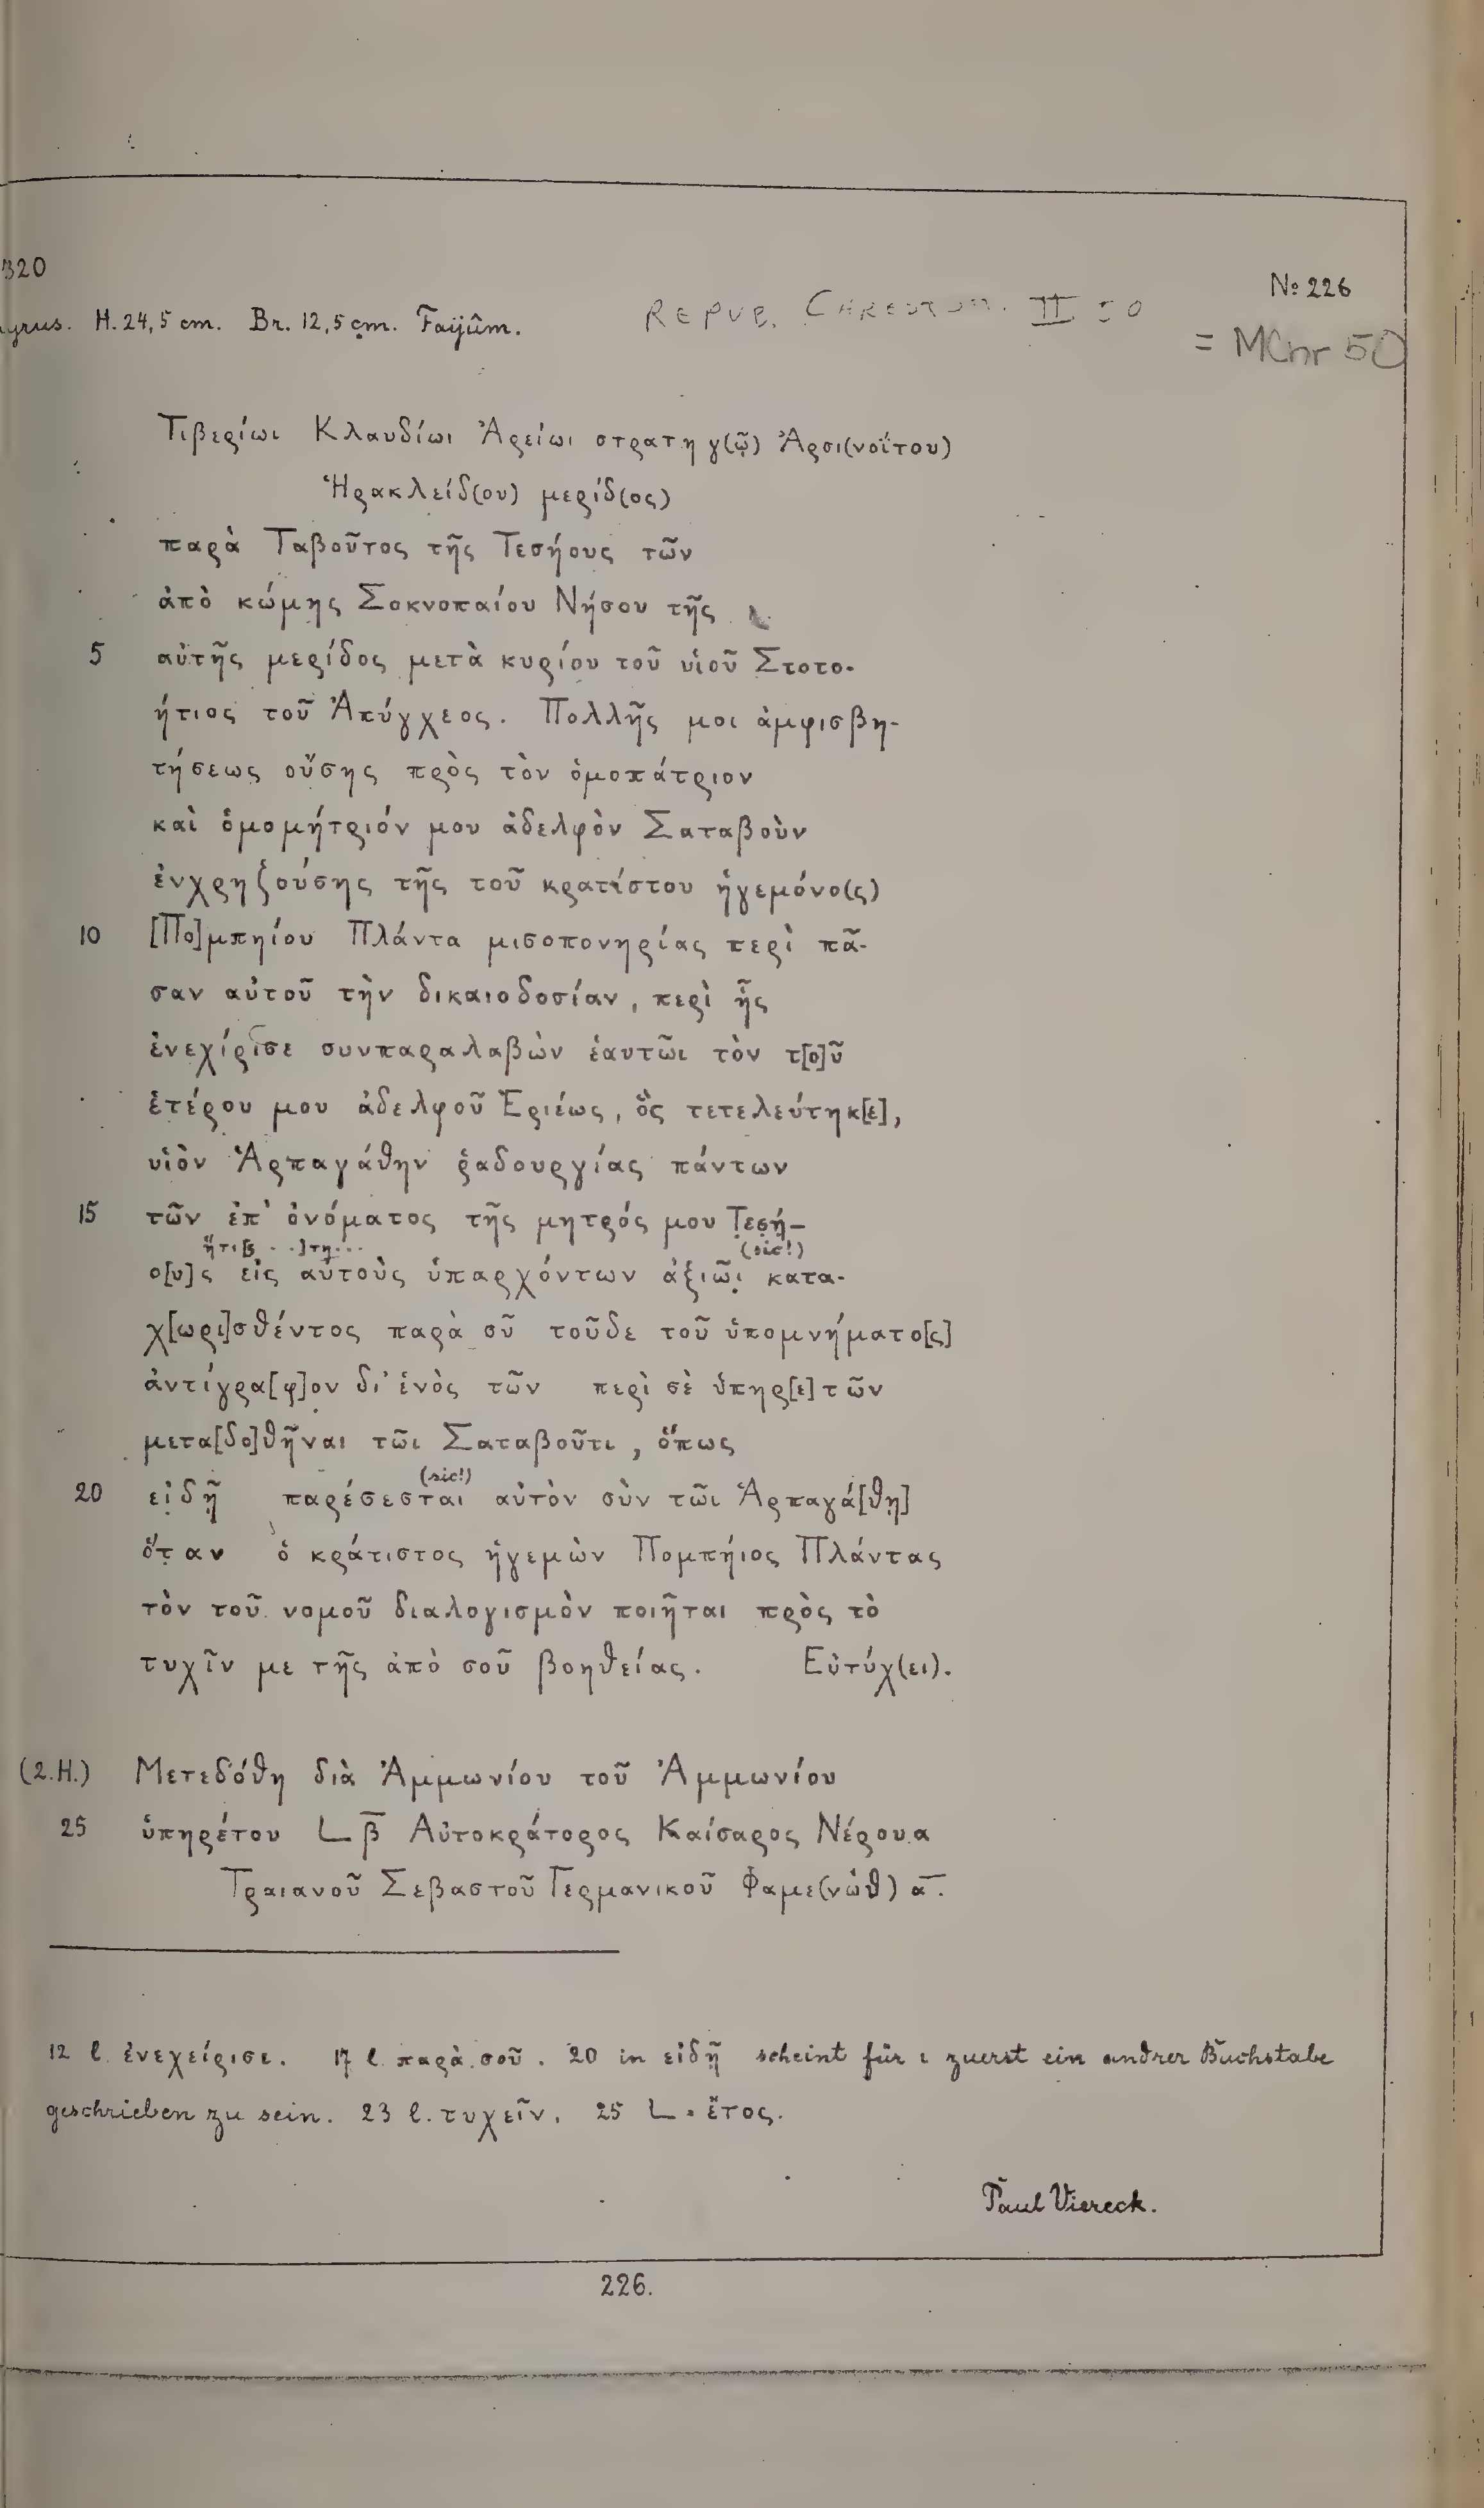 320
№ 226
yrus. H. 24,5 cm. Br. 12,5 cm. Faijûm.
REPUB. CHRESTOM. II 50
= MChr 50
Τιβερίωι Κλαυδίωι Ἀρείωι στρατηγ(ῷ) Ἀρσι(νοΐτου)
Ἡρακλείδ(ου) μερίδ(ος)
παρὰ Ταβοῦτος τῆς Τεσήους τῶν
ἀπὸ κώμης Σοκνοπαίου Νήσου τῆς
5 αὐτῆς μερίδος μετὰ κυρίου τοῦ υἱοῦ Στοτο-
ήτιος τοῦ Ἀπύγχεος. Πολλῆς μοι ἀμφισβη-
τήσεως οὔσης πρὸς τὸν ὁμοπάτριον
καὶ ὁμομήτριόν μου ἀδελφὸν Σαταβοὺν
ἐνχρηζούσης τῆς τοῦ κρατίστου ἡγεμόνο(ς)
10 [Πο]μπηίου Πλάντα μισοπονηρίας περὶ πᾶ-
σαν αὐτοῦ τὴν δικαιοδοσίαν, περὶ ἧς
ἐνεχίρισε συνπαραλαβὼν ἑαυτῶι τὸν τ[ο]ῦ
ἑτέρου μου ἀδελφοῦ Ἑριέως, ὃς τετελεύτηκ[ε],
υἱὸν Ἁρπαγάθην ῥαδουργίας πάντων
15 τῶν ἐπ' ὀνόματος τῆς μητρός μου Τ̣εσ̣ή̣-
ἥτι[ς ..]τη... (sic!)
ο[υ]ς εἰς αὐτοὺς ὑπαρχόντων ἀξιῶι̣ κατα-
χ[ωρι]σθέντος παρὰ σῦ τοῦδε τοῦ ὑπομνήματο[ς]
ἀντίγρα[φ]ον δι' ἑνὸς τῶν περὶ σὲ ὑπηρ[ε]τῶν
μετα[δο]θῆναι τῶι Σαταβοῦτι, ὅπως
(sic!)
20 εἰ̣δῆ̣ παρέσεσται αὐτὸν σὺν τῶι Ἁρπαγά[θῃ]
ὅτ̣αν ὁ κράτιστος ἡγεμὼν Πομπήιος Πλάντας
τὸν τοῦ νομοῦ διαλογισμὸν ποιῆται πρὸς τὸ
τυχῖν με τῆς ἀπὸ σοῦ βοηθείας. Εὐτύχ(ει).
(2. H.) Μετεδόθη διὰ Ἀμμωνίου τοῦ Ἀμμωνίου
25 ὑπηρέτου L β̅ Αὐτοκράτορος Καίσαρος Νέρουα
Τραιανοῦ Σεβαστοῦ Γερμανικοῦ Φαμε(νὼθ) α̅.
12 l. ἐνεχείρισε. 17 l. παρὰ σοῦ. 20 in εἰδῆ̣ scheint für ι zuerst ein andrer Buchstabe
geschrieben zu sein. 23 l. τυχεῖν. 25 L = ἔτος.
Paul Viereck.
226.